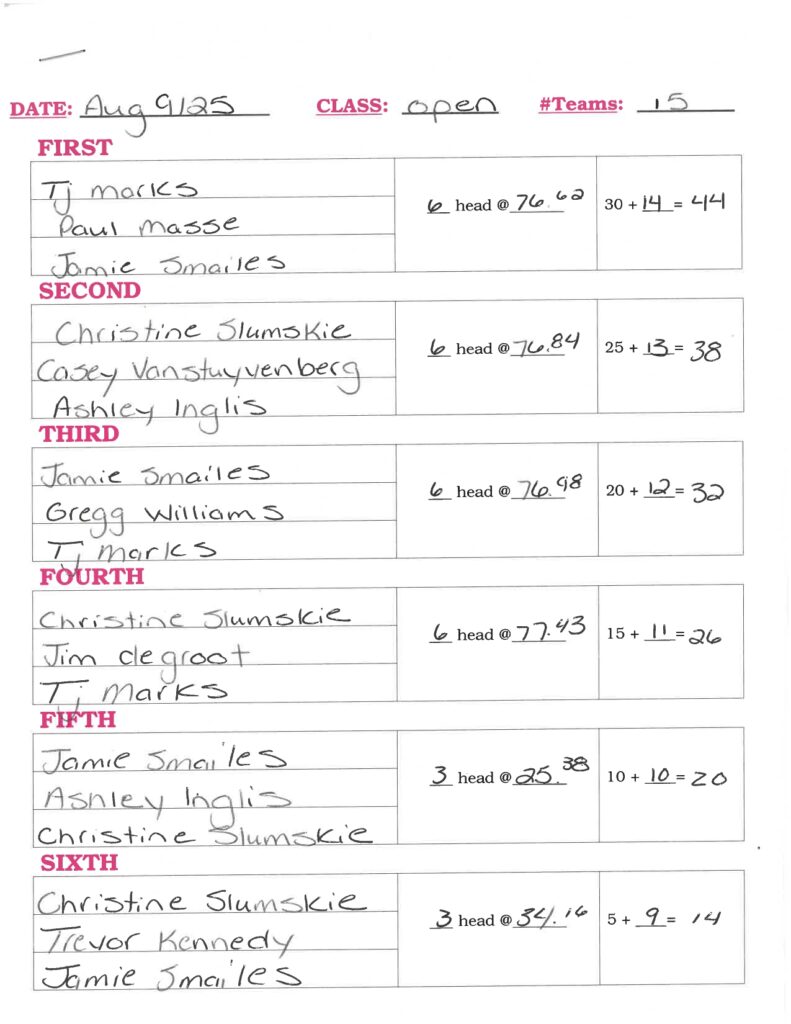 DATE: Aug 9/25 CLASS: open #Teams: 15
FIRST
Tj marks
Paul masse
Jamie Smailes
6 head @ 76.62
30 + 14 = 44
SECOND
Christine Slumskie
Casey Vanstuyvenberg
Ashley Inglis
6 head @ 76.84
25 + 13 = 38
THIRD
Jamie Smailes
Gregg Williams
Tj marks
6 head @ 76.98
20 + 12 = 32
FOURTH
Christine Slumskie
Jim degroot
Tj Marks
6 head @ 77.43
15 + 11 = 26
FIFTH
Jamie Smailes
Ashley Inglis
Christine Slumskie
3 head @ 25.38
10 + 10 = 20
SIXTH
Christine Slumskie
Trevor Kennedy
Jamie Smailes
3 head @ 34.16
5 + 9 = 14